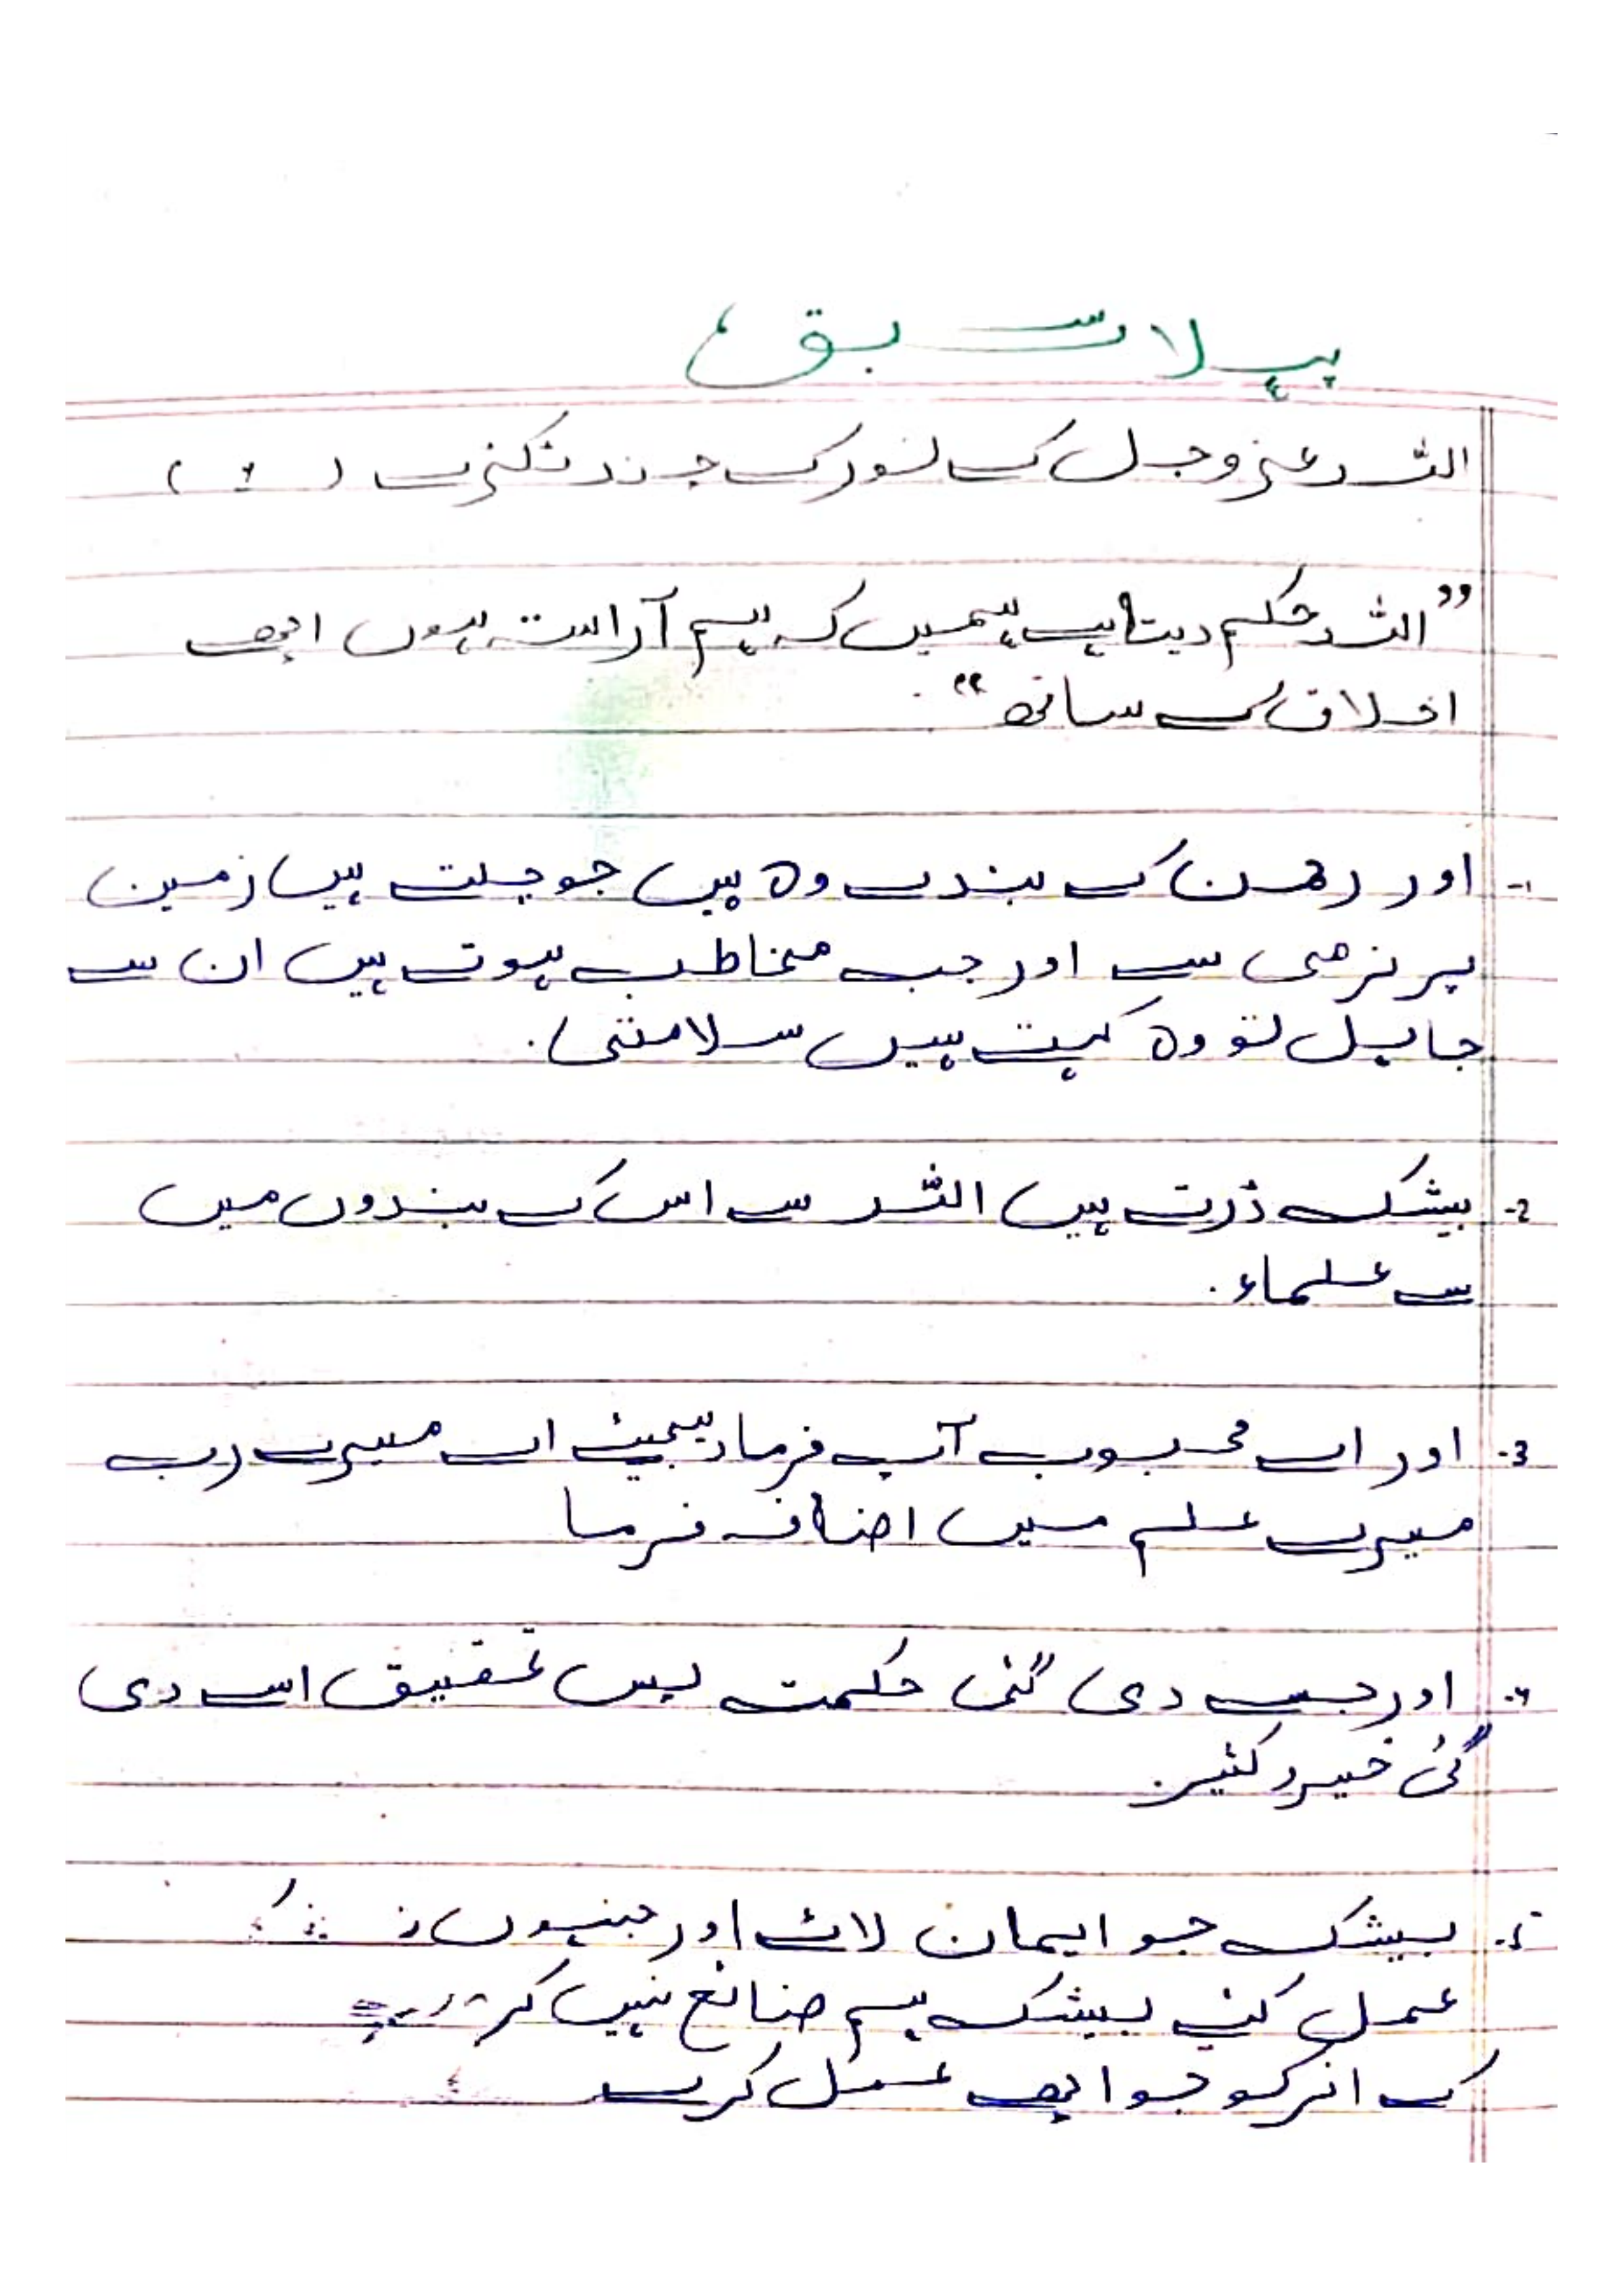 پہلا سبق
اللہ عزوجل کے نور کے چند تنکنرے (2)
"اللہ حکم دیتا ہے ہمیں کہ ہم آراستہ ہوں اچھے
اخلاق کے ساتھ"
1- اور رحمن کے بندے وہ ہیں جو چلتے ہیں زمین
پر نرمی سے اور جب مخاطب ہوتے ہیں ان سے
جاہل تو وہ کہتے ہیں سلامتی.
2- بیشک ڈرتے ہیں اللہ سے اس کے بندوں میں
سے علماء.
3- اور اے محبوب آپ فرمادیجیئے اے میرے رب
میرے علم میں اضافہ فرما
4- اور جسے دی گئی حکمت پس تحقیق اسے دی
گئی خیر و کثیر.
5- بیشک جو ایمان لائے اور جنہوں نے
عمل کئے بیشک ہم ضائع نہیں کرتے
کے اجر کو جو اچھے عمل کرے